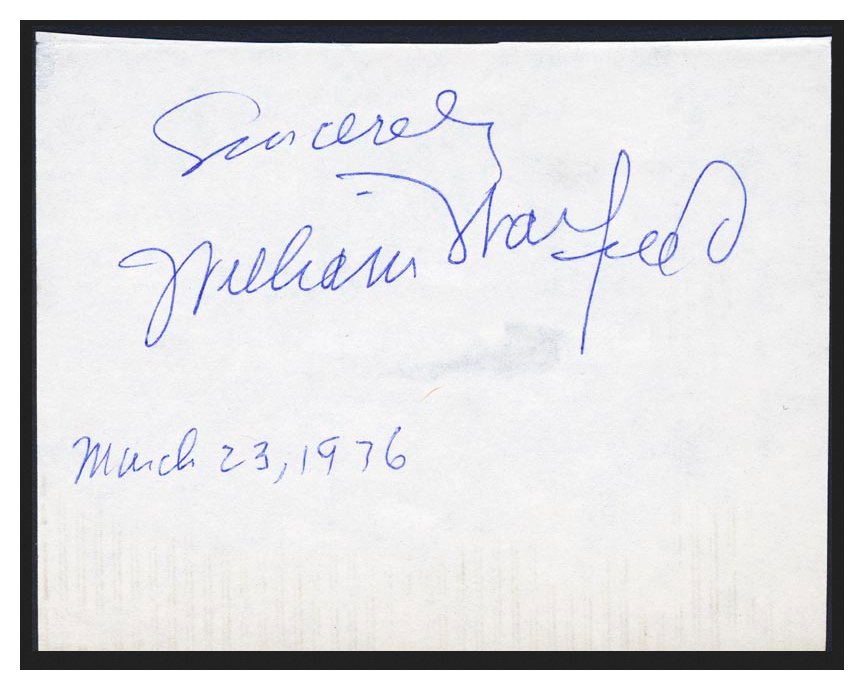 Sincerely
William Warfield
March 23, 1976